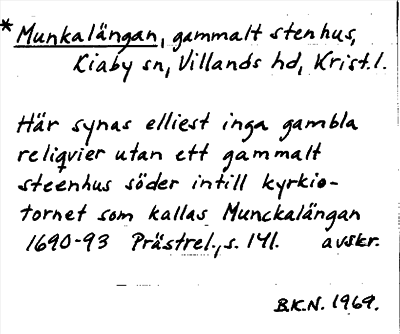 * Munkalängan, gammalt stenhus,
Kiaby sn, Villands hd, Krist.l.
Här synas elliest inga gambla
reliqvier utan ett gammalt
steenhus söder intill kyrkio-
tornet som kallas Munckalängan
1690-93 Prästrel., s. 141. avskr.
B.K.N. 1969.